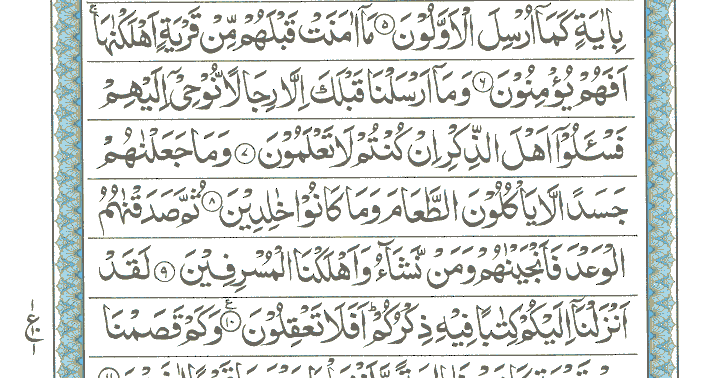 بِاٰيَةٍ كَمَاۤ اُرْسِلَ الْاَوَّلُوْنَ ۵ مَاۤ اٰمَنَتْ قَبْلَهُمْ مِّنْ قَرْيَةٍ اَهْلَكْنٰهَا ۚ
اَفَهُمْ يُؤْمِنُوْنَ ۶ وَمَاۤ اَرْسَلْنَا قَبْلَكَ اِلَّا رِجَالًا نُّوْحِيْۤ اِلَيْهِمْ
فَسْـَٔلُوْۤا اَهْلَ الذِّكْرِ اِنْ كُنْتُمْ لَا تَعْلَمُوْنَ ۷ وَمَا جَعَلْنٰهُمْ
جَسَدًا لَّا يَاْكُلُوْنَ الطَّعَامَ وَمَا كَانُوْا خٰلِدِيْنَ ۸ ثُمَّ صَدَقْنٰهُمُ
الْوَعْدَ فَاَنْجَيْنٰهُمْ وَمَنْ نَّشَآءُ وَاَهْلَكْنَا الْمُسْرِفِيْنَ ۹ لَقَدْ
اَنْزَلْنَاۤ اِلَيْكُمْ كِتٰبًا فِيْهِ ذِكْرُكُمْ ؕ اَفَلَا تَعْقِلُوْنَ ۱۰ وَكَمْ قَصَمْنَا